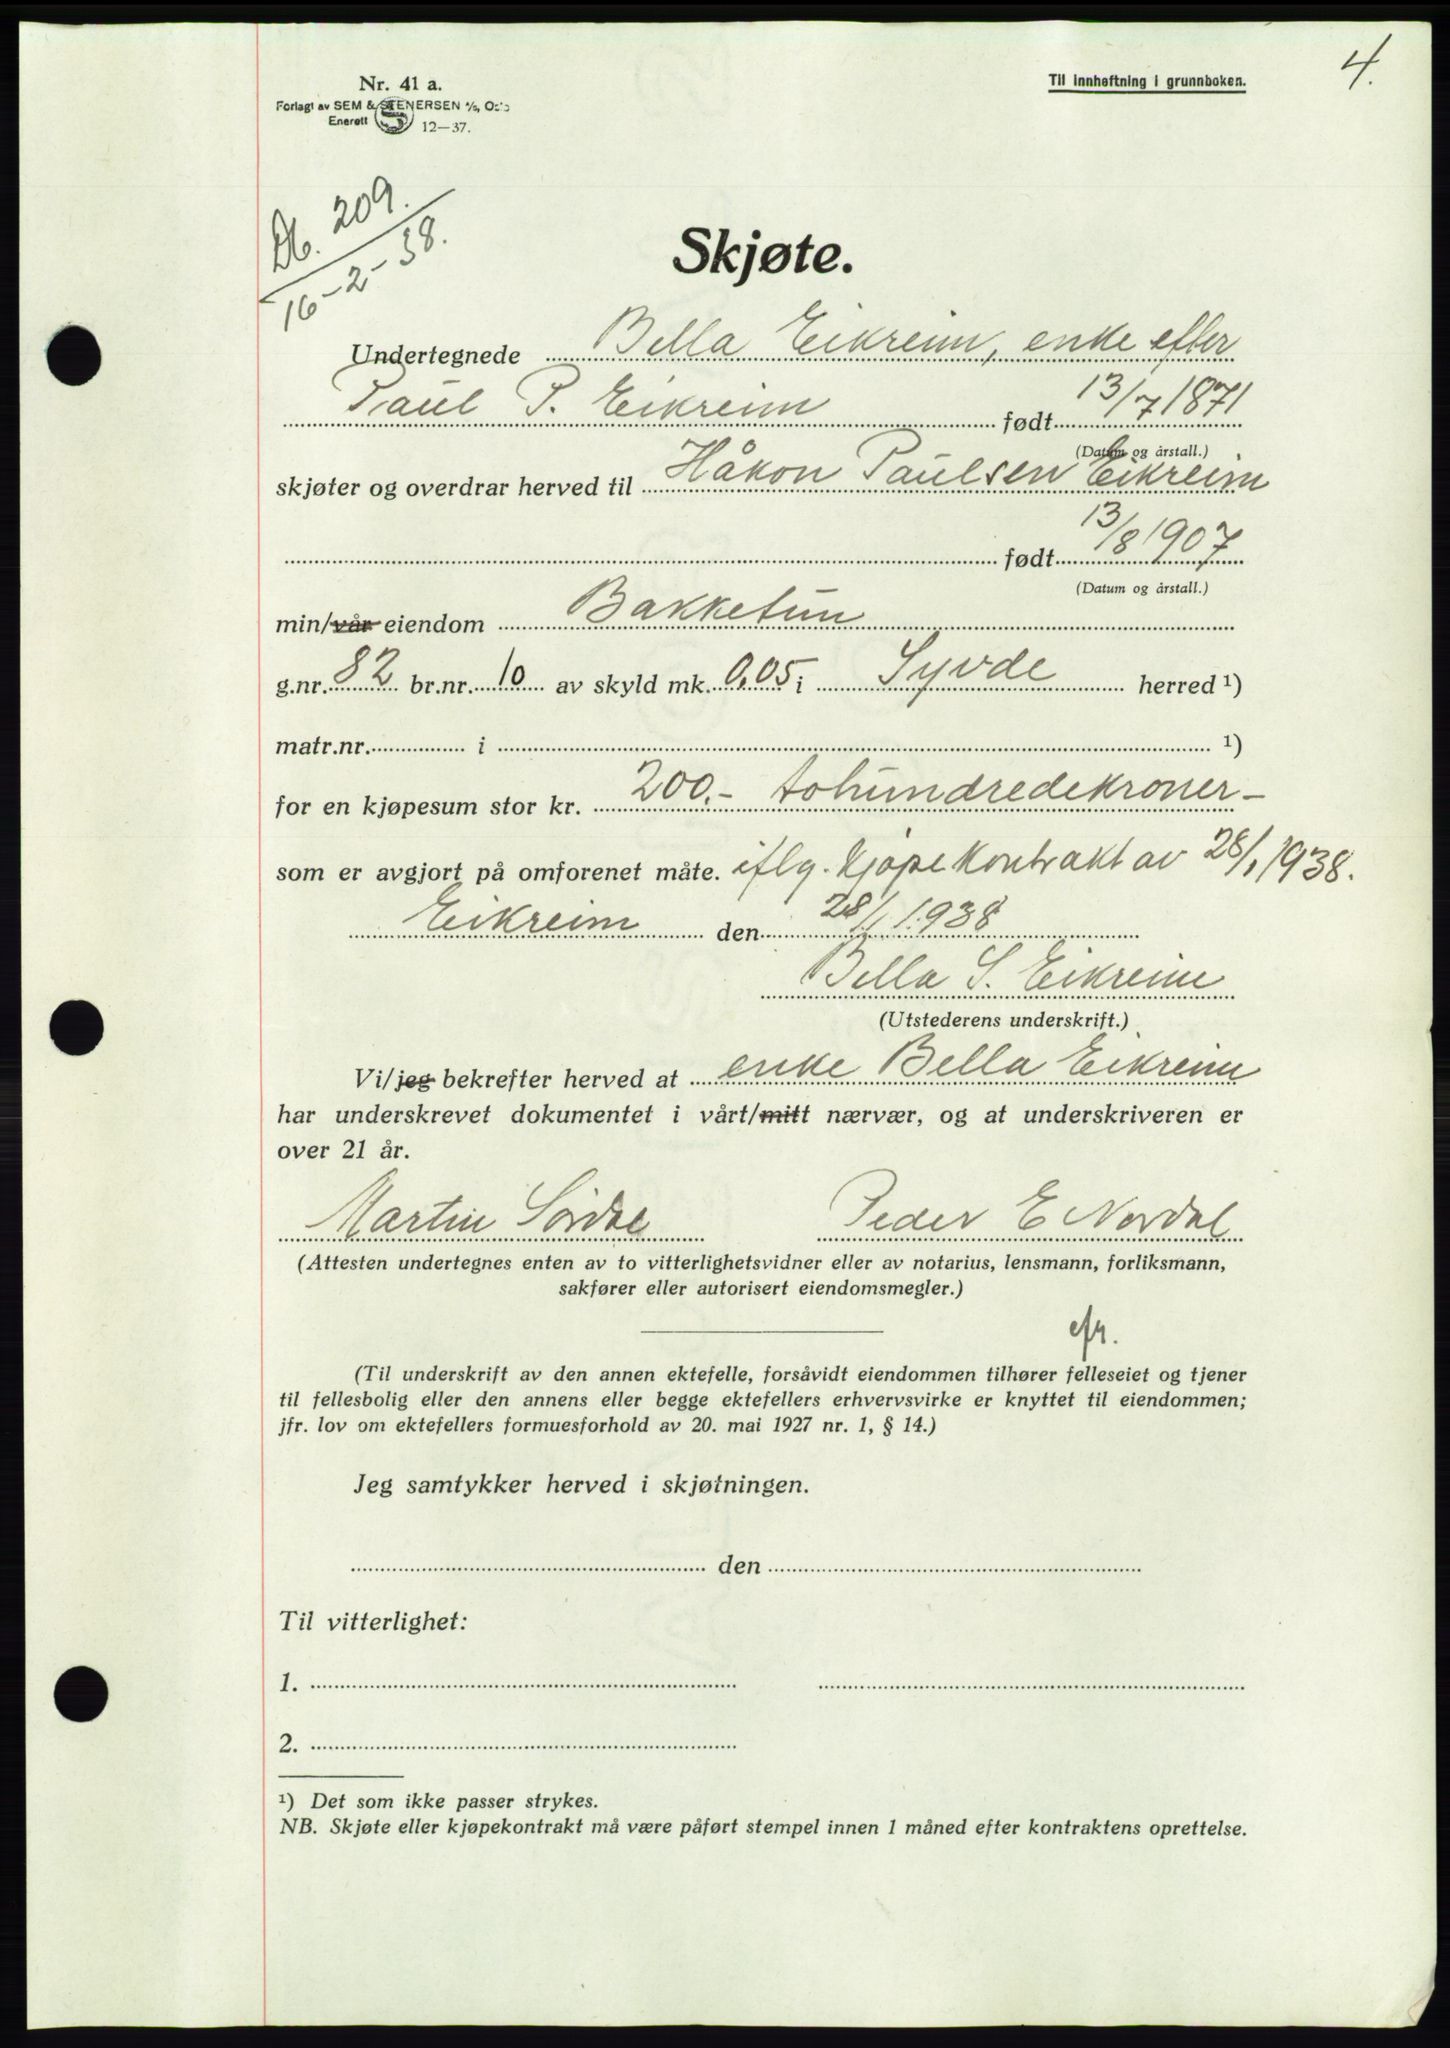 4.
Nr. 41 a.
Forlagt av SEM & STENERSEN A/S, Oslo
Enerett
12—37.
Til innheftning i grunnboken.
Db. 209.
16-2-38.
Skjøte.
Undertegnede Bella Eikreim, enke efter
Paul P. Eikreim født 13/7 1871
(Datum og årstall.)
skjøter og overdrar herved til Håkon Paulsen Eikreim
født 13/8 1907
(Datum og årstall.)
min/vår eiendom Bakketun
g.nr. 82 br.nr. 10 av skyld mk. 0,05 i Syvde herred ¹)
matr.nr. i ¹)
for en kjøpesum stor kr. 200.- tohundredekroner-
som er avgjort på omforenet måte. iflg. kjøpekontrakt av 28/1 1938.
Eikreim den 28/1 1938
Bella S. Eikreim
(Utstederens underskrift.)
Vi/jeg bekrefter herved at enke Bella Eikreim
har underskrevet dokumentet i vårt/mitt nærvær, og at underskriveren er
over 21 år.
Martin Sørdal Peder E Nordal
(Attesten undertegnes enten av to vitterlighetsvidner eller av notarius, lensmann, forliksmann,
sakfører eller autorisert eiendomsmegler.)
(Til underskrift av den annen ektefelle, forsåvidt eiendommen tilhører felleseiet og tjener
til fellesbolig eller den annens eller begge ektefellers erhvervsvirke er knyttet til eiendommen;
jfr. lov om ektefellers formuesforhold av 20. mai 1927 nr. 1, § 14.)
Jeg samtykker herved i skjøtningen.
den
Til vitterlighet:
1.
2.
¹) Det som ikke passer strykes.
NB. Skjøte eller kjøpekontrakt må være påført stempel innen 1 måned efter kontraktens oprettelse.